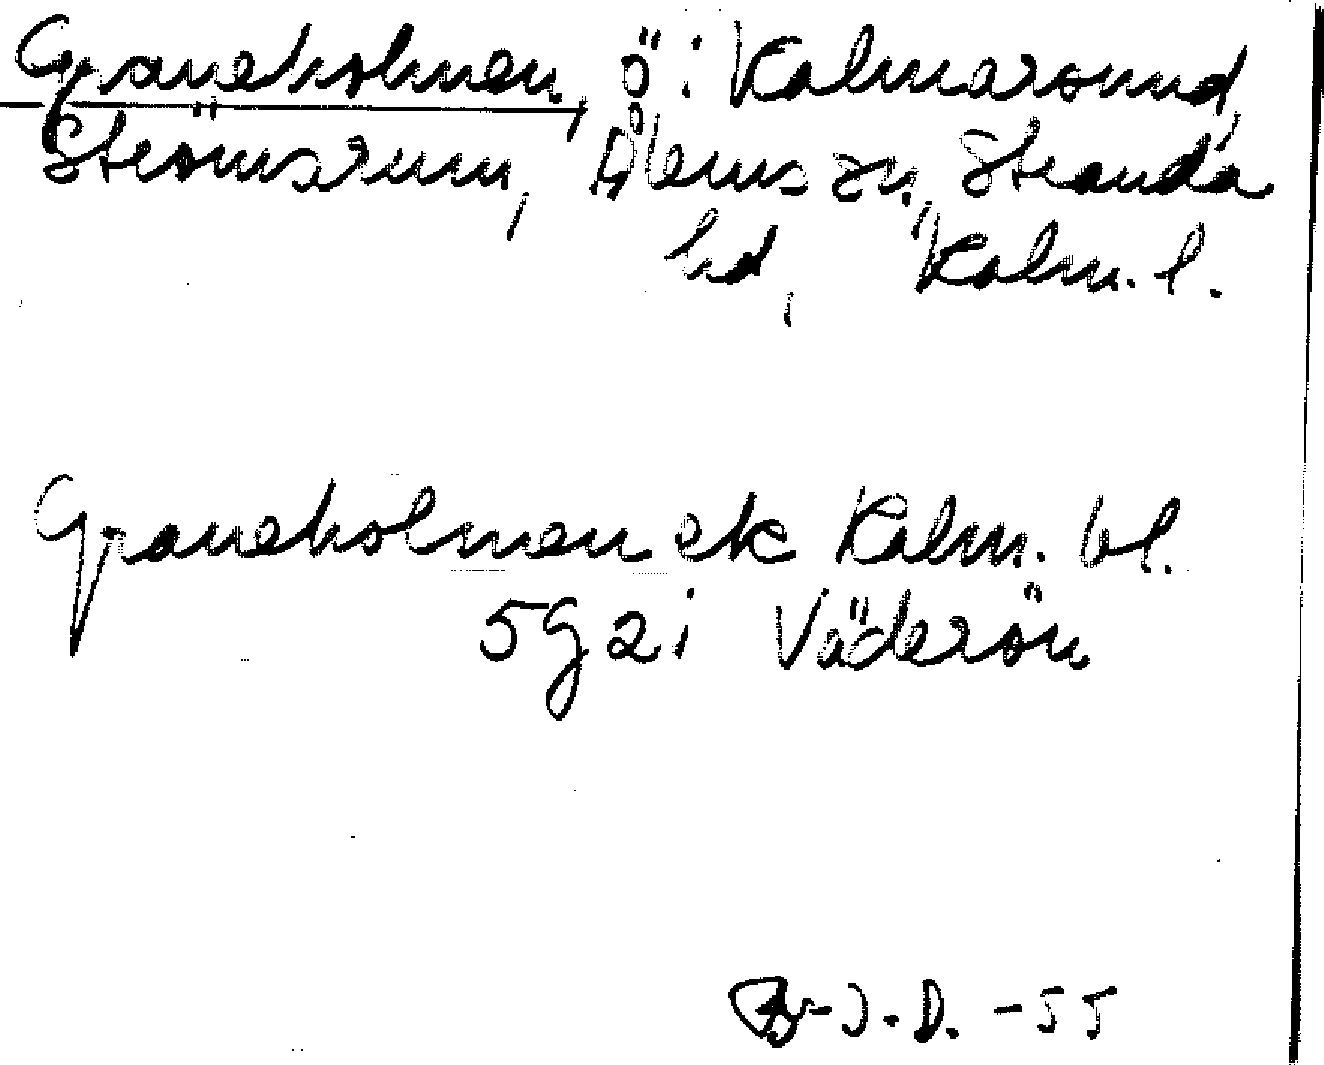 Graneholmen, ö i Kalmarsund,
Strömsrum, Ålems sn, Stranda
hd, Kalm. l.
Graneholmen ek Kalm. bl.
5G 2i Väderön
B-J.D. -55